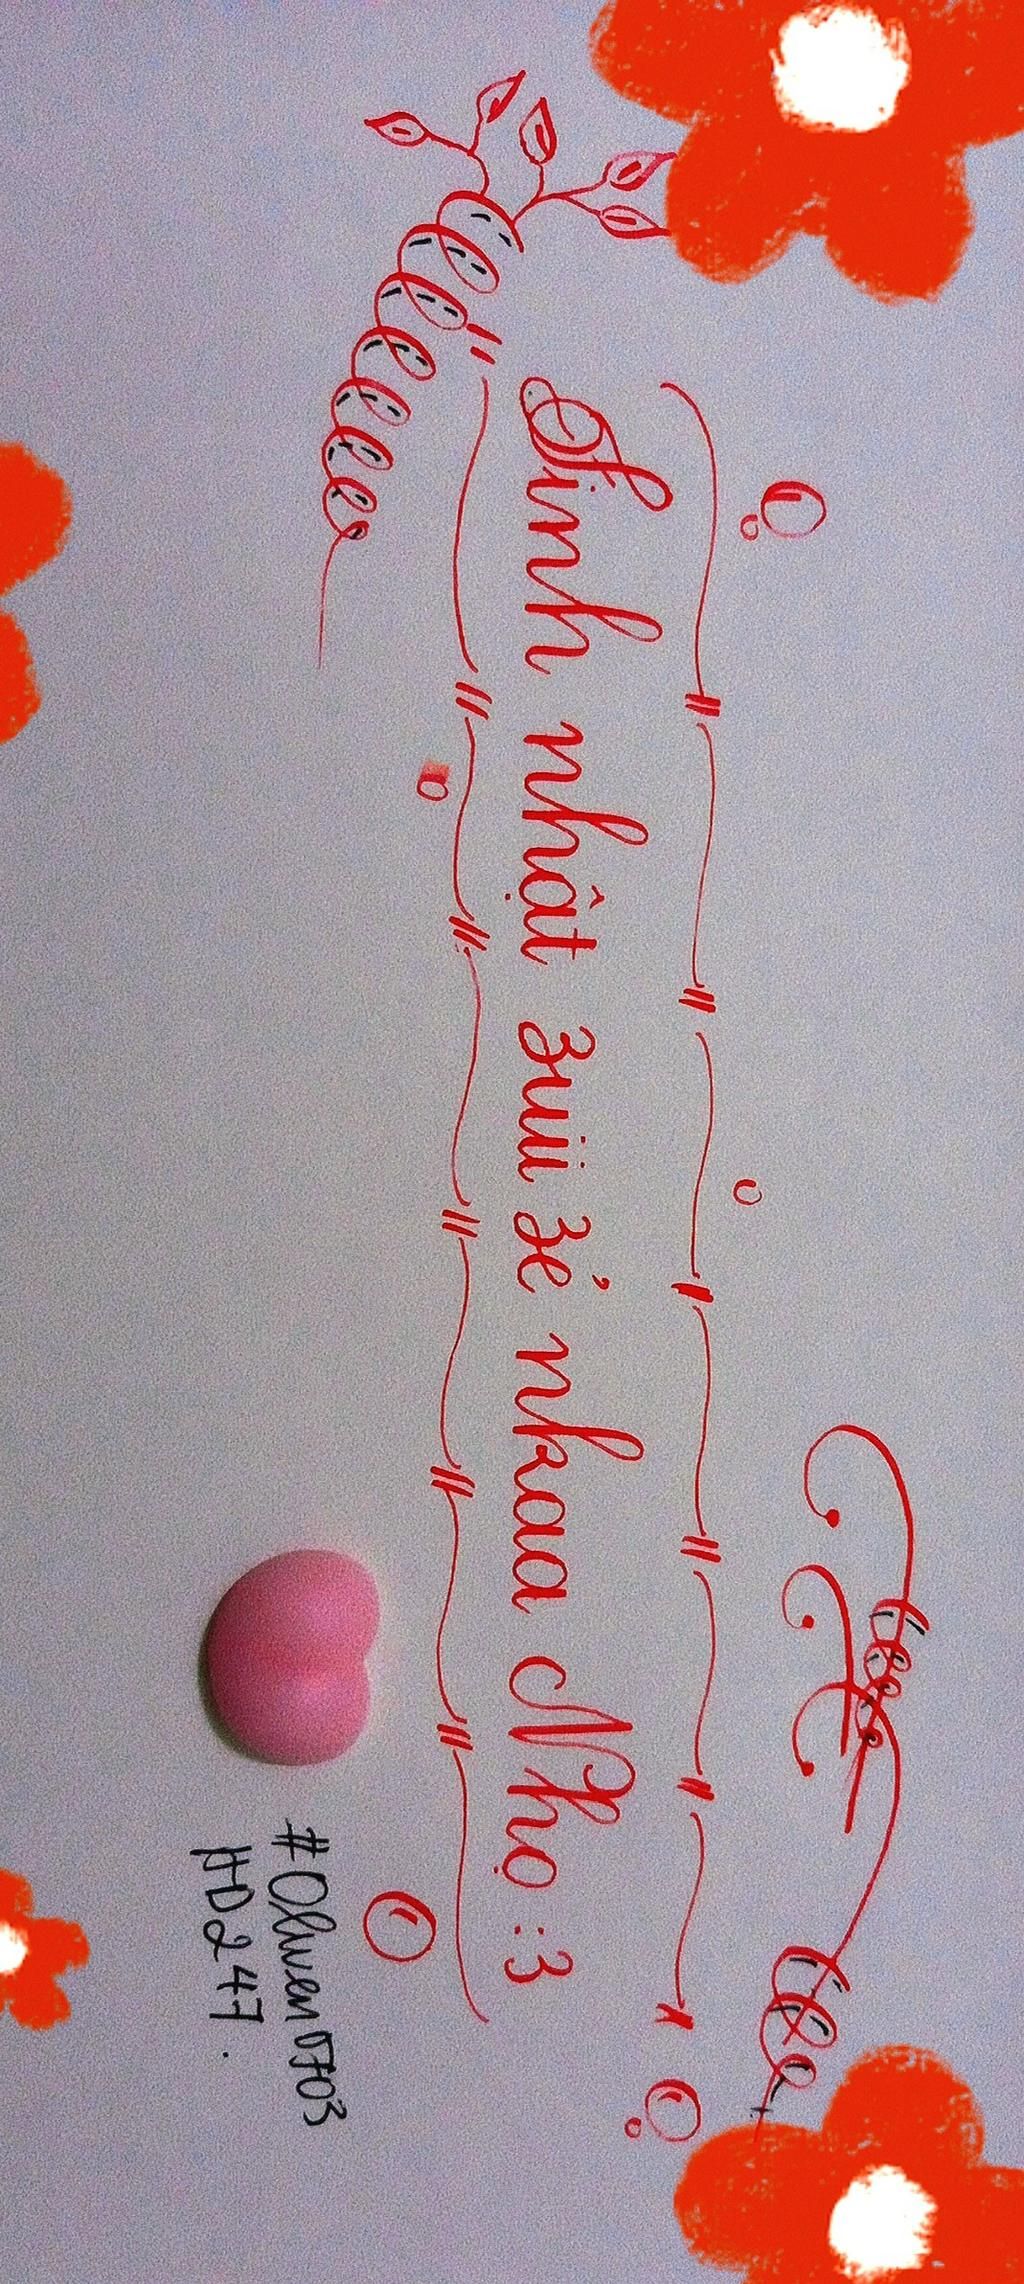 Sinh nhật zuii zẻ nkaaa Nhọ :3
#Olwen0703
HD247.